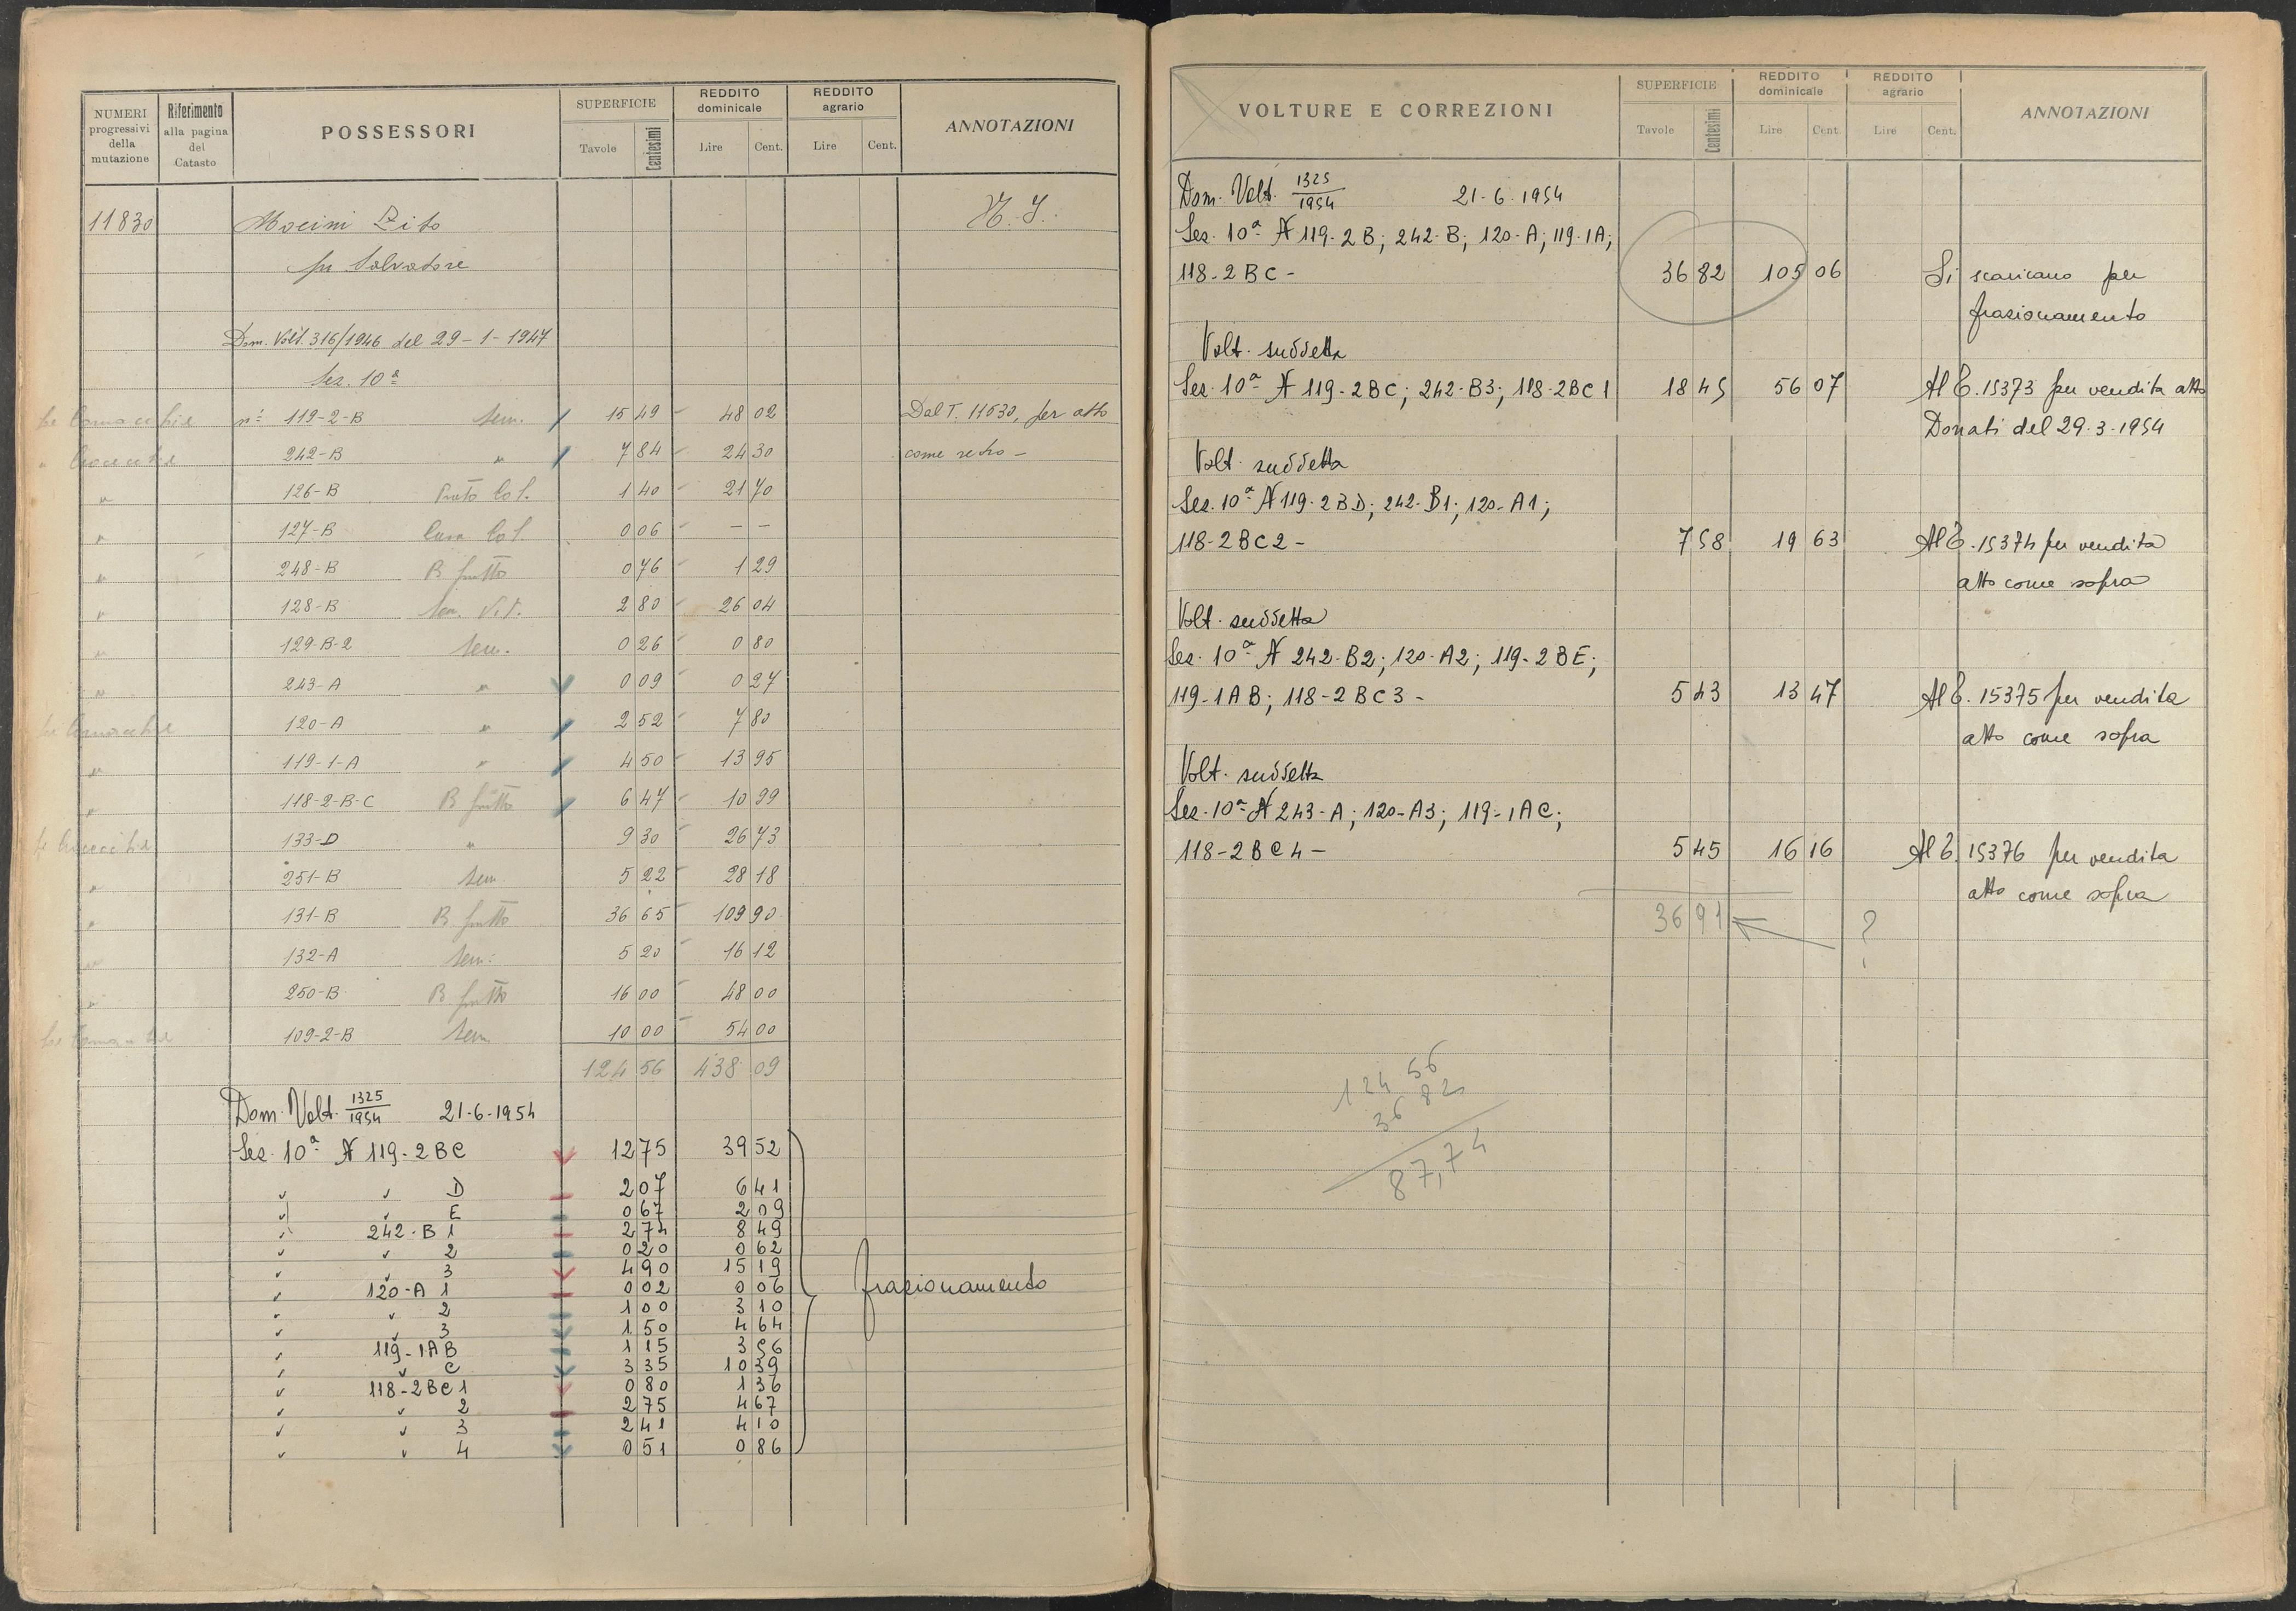 NUMERI progressivi della mutazione
Riferimento alla pagina del Catasto
POSSESSORI
SUPERFICIE
Tavole Centesimi
REDDITO dominicale
Lire Cent.
REDDITO agrario
Lire Cent.
ANNOTAZIONI
11830 Mocini Zito
fu Salvatore
Dom. Volt. 316/1946 del 29-1-1947
Sez. 10ª
nⁱ 119-2-B Sem. 15 49 48 02 Dal T. 11530, per atto
242-B " 7 84 24 30 come retro -
" 126-B Prato Col. 1 40 21 70
" 127-B Casa Col. 0 06 - -
" 248-B B frutto 0 76 1 29
" 128-B Sem. Vit. 2 80 26 04
" 129-B-2 Sem. 0 26 0 80
" 243-A " 0 09 0 27
120-A " 2 52 7 80
" 119-1-A " 4 50 13 95
" 118-2-B-C B frutto 6 47 10 99
133-D " 9 30 26 73
" 251-B Sem 5 22 28 18
" 131-B B frutto 36 65 109 90
" 132-A Sem. 5 20 16 12
" 250-B B frutto 16 00 48 00
109-2-B Sem. 10 00 54 00
124 56 438 09
Dom. Volt. 1325/1954 21-6-1954
Sez. 10ª N 119-2BC 12 75 39 52
" " D 2 07 6 41
" " E 0 67 2 09
" 242-B 1 2 74 8 49
" " 2 0 20 0 62
" " 3 4 90 15 19
" 120-A 1 0 02 0 06 frazionamento
" " 2 1 00 3 10
" " 3 1 50 4 64
" 119-1AB 1 15 3 56
" " C 3 35 10 39
" 118-2BC1 0 80 1 36
" " 2 2 75 4 67
" " 3 2 41 4 10
" " 4 0 51 0 86
VOLTURE E CORREZIONI
SUPERFICIE
Tavole Centesimi
REDDITO dominicale
Lire Cent.
REDDITO agrario
Lire Cent.
ANNOTAZIONI
Dom. Volt. 1325/1954 21-6-1954
Sez. 10ª N 119-2B; 242-B; 120-A; 119-1A;
118-2BC- 36 82 105 06 Si scaricano per
frazionamento
Volt. suddetta
Sez. 10ª N 119-2BC; 242-B3; 118-2BC1 18 45 56 07 Al T. 15373 per vendita atto
Donati del 29-3-1954
Volt. suddetta
Sez. 10ª N 119-2BD; 242-B1; 120-A1;
118-2BC2- 7 58 19 63 Al T. 15374 per vendita
atto come sopra
Volt. suddetta
Sez. 10ª N 242-B2; 120-A2; 119-2BE;
119-1AB; 118-2BC3- 5 43 13 47 Al T. 15375 per vendita
atto come sopra
Volt. suddetta
Sez. 10ª N 243-A; 120-A3; 119-1AC;
118-2BC4- 5 45 16 16 Al T. 15376 per vendita
atto come sopra
36 91 ?
124 56
36 82
87,74